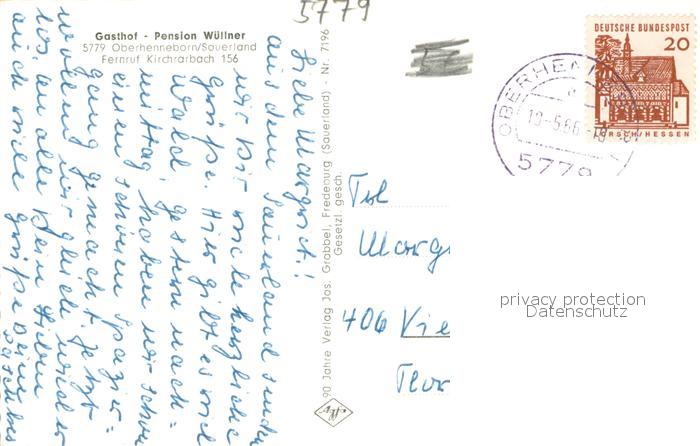 5779
Gasthof - Pension Wüllner
5779 Oberhenneborn/Sauerland
Fernruf Kirchrarbach 156
Liebe Margret!
aus dem Sauerland senden
wir Dir viele herzliche
Grüße. Hier gibt es viel
Wald. gestern nach-
mittag haben wir schon
einen schönen Spazier-
gang gemacht. Jetzt
wollen wir gleich wieder
los. an alle Deine Lieben
auch viele Grüße Deine
90 Jahre Verlag Jos. Grobbel, Fredeburg (Sauerland) - Nr. 7196
Gesetzl. gesch.
Frl
Marg
406 Vie
DEUTSCHE BUNDESPOST
20
LORSCH/HESSEN
OBERHENN
19-5.66-18
5779
privacy protection
Datenschutz